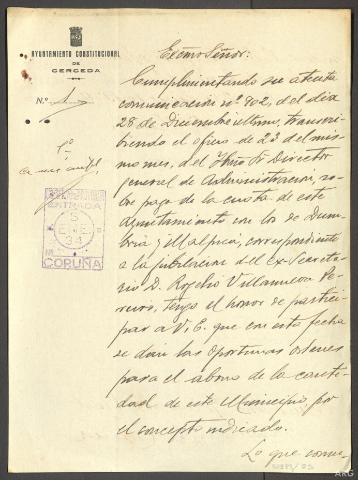 AYUNTAMIENTO CONSTITUCIONAL
DE
CERCEDA
N.º 1
ENTRADA
5
ENE.
34
CORUÑA
Excmo Señor:
Cumplimentando su atenta
comunicación nº 902, del dia
28 de Diciembre último, transcri-
biendo el oficio de 23 del mis-
mo mes, del Ilmo Sr Director
general de Administracion, so-
bre pago de la cuota de este
Ayuntamiento con los de Dum-
bria y Malpica, correspondiente
a la jubilacion del Ex-Secreta-
rio D. Rogelio Villanueva
tengo el honor de partici-
par a V.E. que con esta fecha
se dan las oportunas ordenes
para el abono de la canti-
dad de este Municipio por
el concepto indicado.
Lo que comu-
ARG